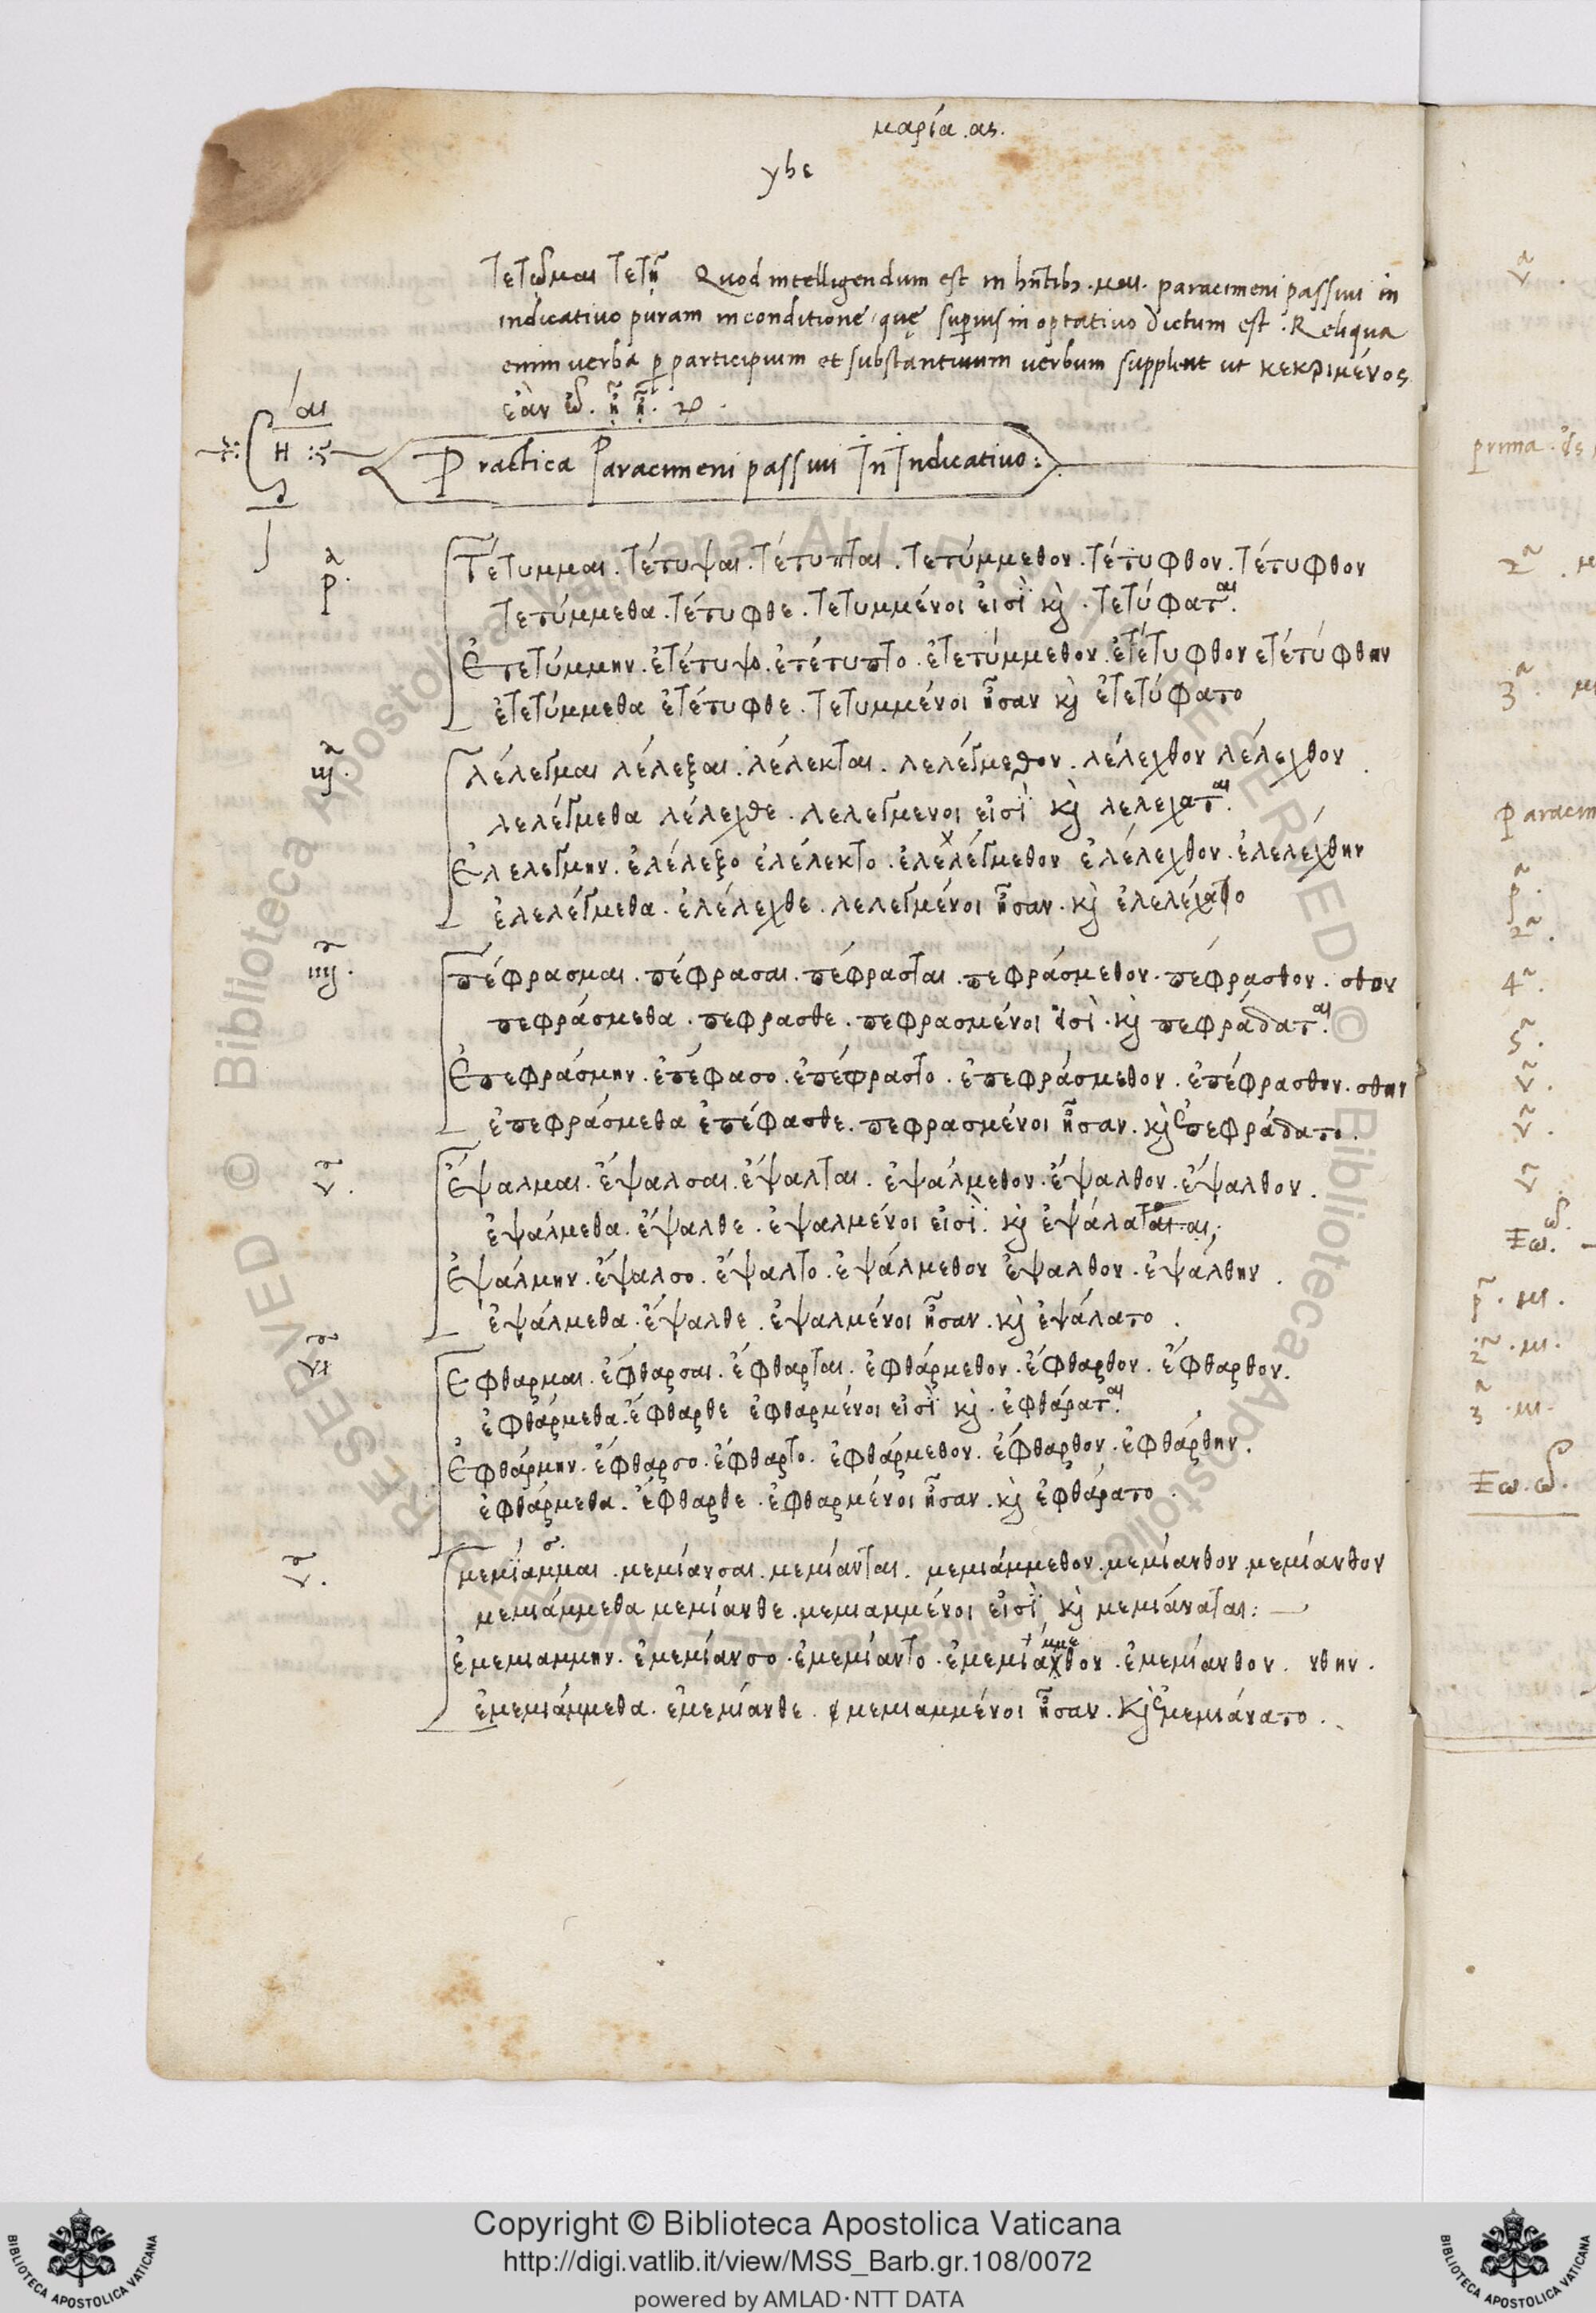 μαρία .ας.
yhs
τετῶμαι τετῇ Quod intelligendum est in hñtibꝫ .μαι. paracimeni passiui in
indicativo puram in conditione que superius in optativo dictum est . Reliqua
enim verba p participium et substantiuum verbum supplent ut κεκριμένος
ἐὰν ὦ. ᾖς ᾖ.
αι
H
Practica Paracimeni passiui In Indicativo:
pª.
Τέτυμμαι . τέτυψαι . τέτυπται . τετύμμεθον . τέτυφθον . τέτυφθον
τετύμμεθα . τέτυφθε . τετυμμένοι εἰσὶ κὶ . τετύφαται.
Ἐτετύμμην . ἐτέτυψο . ἐτέτυπτο . ἐτετύμμεθον . ἐτέτυφθον ετέτύφθην
ἐτετύμμεθα ἐτέτυφθε . τετυμμένοι ἦσαν κὶ ἐτετύφατο
iijª.
λέλεγμαι λέλεξαι . λέλεκται . λελέγμεθον . λέλεχθον λέλεχθον
λελέγμεθα λέλεχθε . λελεγμενοι εἰσὶ κὶ λελέχαται.
Ἐλελεγμην . ἐλέλεξο ἐλέλεκτο . ἐλελέγμεθον ἐλέλεχθον . ἐλελέχθην
ἐλελέγμεθα . ἐλέλεχθε . λελεγμένοι ἦσαν . κὶ ἐλελέχατο
iiijª.
πέφρασμαι . πέφρασαι . πέφρασται . πεφράσμεθον . πέφρασθον . σθον
πεφράσμεθα . πεφρασθε . πεφρασμένοι εἰσὶ . κὶ πεφράδαται.
Ἐπεφράσμην . ἐπέφασο . ἐπέφραστο . ἐπεφράσμεθον . ἐπέφρασθον . σθην
ἐπεφράσμεθα ἐπέφασθε . πεφρασμένοι ἦσαν . κὶ ἐπεφράδατο .
vª.
Ἔψαλμαι . ἔψαλσαι . ἔψαλται . ἐψάλμεθον . ἔψαλθον . ἔψαλθον .
ἐψάλμεθα . ἔψαλθε . ἐψαλμένοι εἰσὶ . κὶ ἐψάλαται
Ἐψάλμην . ἔψαλσο . ἔψαλτο . ἐψάλμεθον ἔψαλθον . ἐψάλθην .
ἐψάλμεθα . ἔψαλθε . ἐψαλμένοι ἦσαν . κὶ ἐψάλατο .
viª
Εφθαρμαι . ἔφθαρσαι . ἔφθαρται . ἐφθάρμεθον . ἔφθαρθον . ἔφθαρθον.
ἐφθάρμεθα . ἔφθαρθε ἐφθαρμένοι εἰσὶ κὶ . ἐφθάραται.
Ἐφθάρμην . ἔφθαρσο . ἔφθαρτο . ἐφθάρμεθον . ἔφθαρθον . ἐφθάρθην .
ἐφθάρμεθα . ἔφθαρθε . ἐφθαρμένοι ἦσαν . κὶ ἐφθάρατο .
vª.
σ.
μεμίαμμαι . μεμίανσαι . μεμίανται . μεμιάμμεθον . μεμίανθον . μεμίανθον
μεμιάμμεθα μεμίανθε . μεμιαμμένοι εἰσὶ κὶ μεμιάναται:
ἐμεμιαμμην . ἐμεμίανσο . ἐμεμίαντο . ἐμεμιάμμεθον . ἐμεμίανθον . νθην .
ἐμεμιάμμεθα . ἐμεμίανθε . μεμιαμμένοι ἦσαν . κὶ ἐμεμιάνατο .
vª .
prima .
2ª .
3ª .
Paracim
pª.
2ª.
4ª.
5ª.
vª.
vª.
vª
pª . μι .
2ª . μι .
3ª . μι .
Copyright © Biblioteca Apostolica Vaticana
http://digi.vatlib.it/view/MSS_Barb.gr.108/0072
powered by AMLAD·NTT DATA
BIBLIOTECA APOSTOLICA VATICANA
BIBLIOTECA APOSTOLICA VATICANA